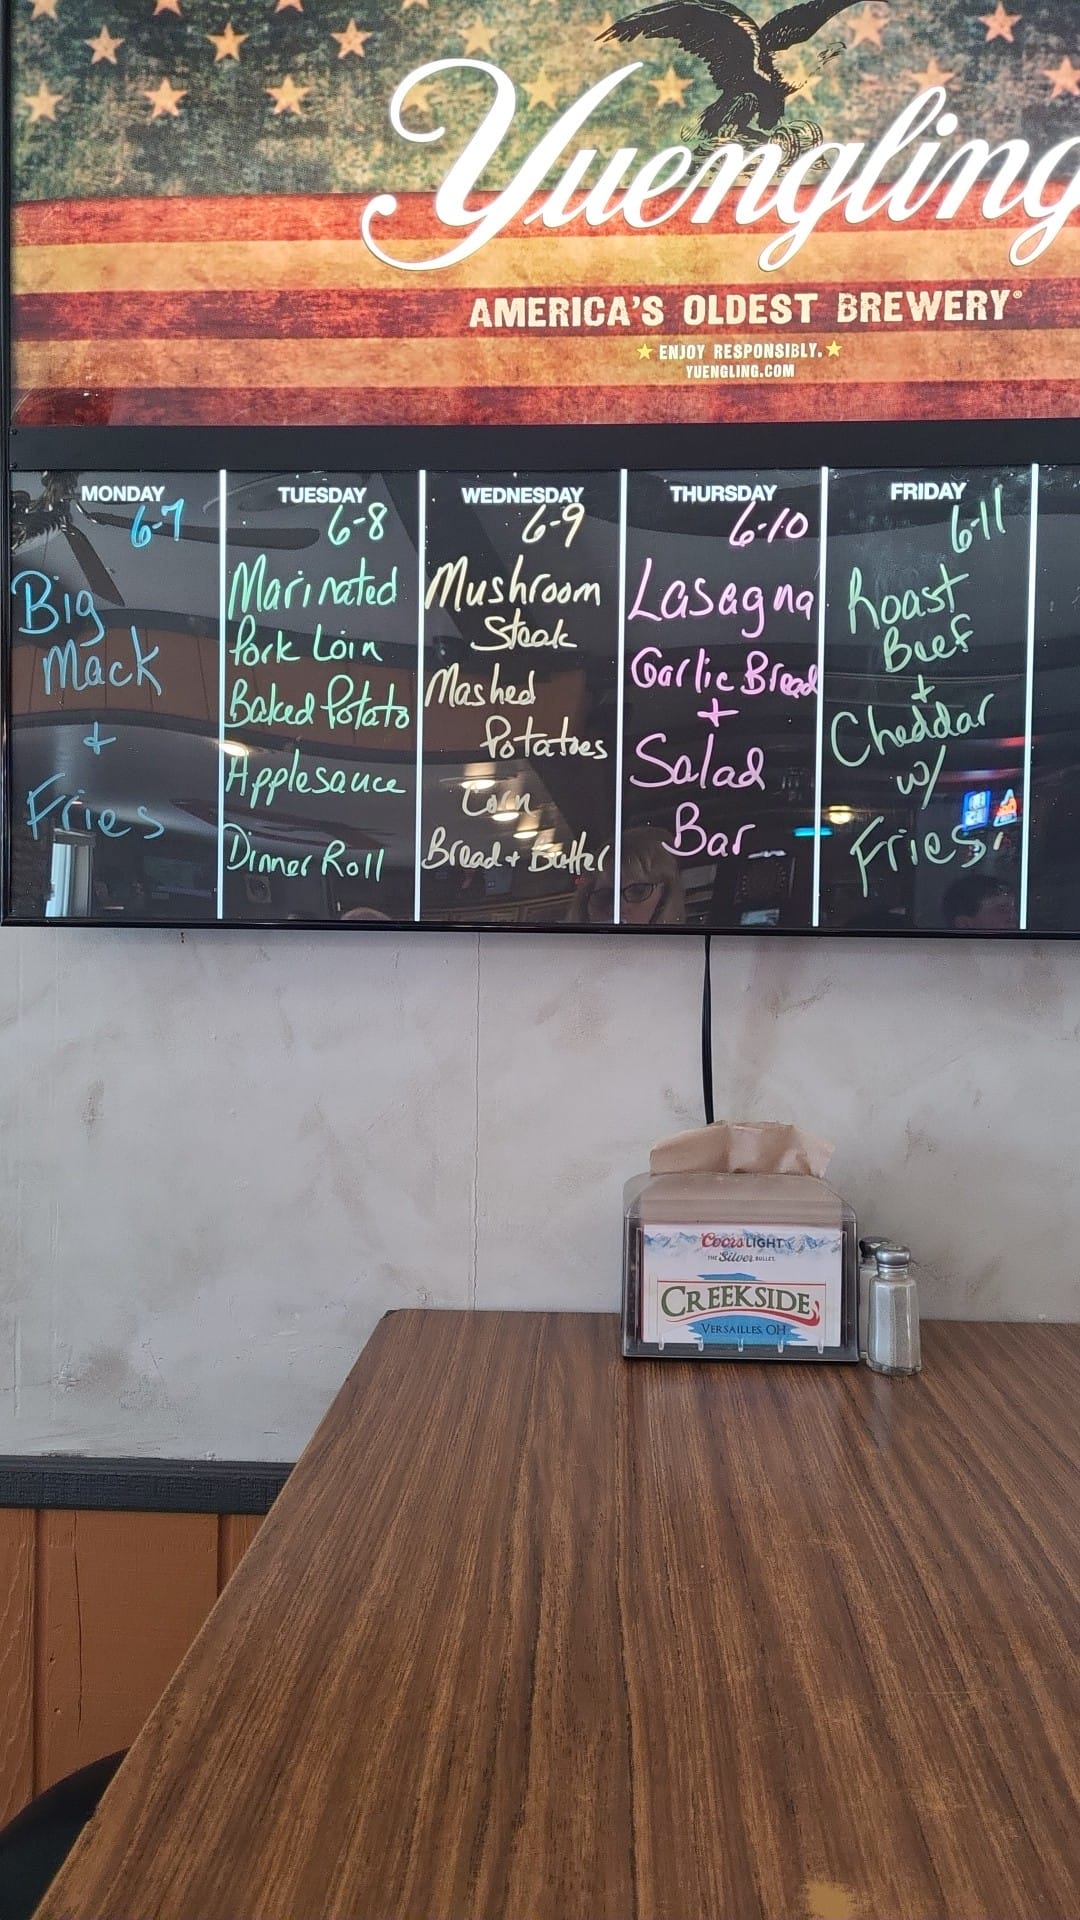 Yuengling
AMERICA'S OLDEST BREWERY®
ENJOY RESPONSIBLY.
YUENGLING.COM
MONDAY
6-7
Big
Mack
+
Fries
TUESDAY
6-8
Marinated
Pork Loin
Baked Potato
Applesauce
Dinner Roll
WEDNESDAY
6-9
Mushroom
Steak
Mashed
Potatoes
Corn
Bread + Butter
THURSDAY
6-10
Lasagna
Garlic Bread
+
Salad
Bar
FRIDAY
6-11
Roast
Beef
+
Cheddar
w/
Fries
Coors LIGHT
THE Silver BULLET.
CREEKSIDE
VERSAILLES, OH